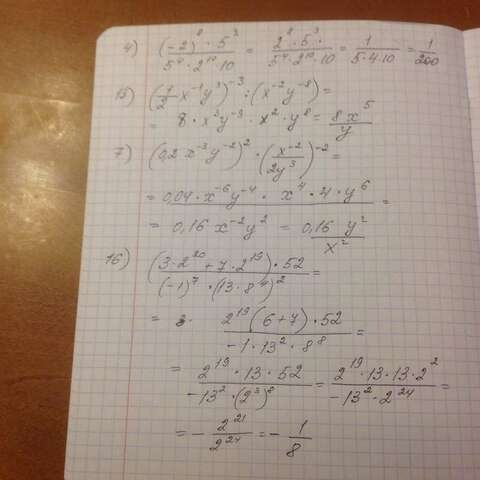 4) ((-2)^8 · 5^3)/(5^4 · 2^10 · 10) = (2^8 · 5^3)/(5^4 · 2^10 · 10) = 1/(5·4·10) = 1/200
15) (1/2 x^-1 y^3)^-3 : (x^-2 y^-8) =
= 8 · x^3 y^-9 · x^2 · y^8 = 8x^5/y
7) (0,2 x^-3 y^-2)^2 · (x^-2/(2y^3))^-2 =
= 0,04 · x^-6 y^-4 · x^4 · 4 · y^6 =
= 0,16 x^-2 y^2 = 0,16 y^2/x^2
16) ((3·2^20 + 7·2^19) · 52)/((-1)^7 · (13·8^4)^2) =
= (2^19 (6+7) · 52)/(-1·13^2 · 8^8) =
= (2^19 · 13 · 52)/(-13^2 · (2^3)^8) = (2^19 · 13 · 13 · 2^2)/(-13^2 · 2^24) =
= - 2^21/2^24 = - 1/8